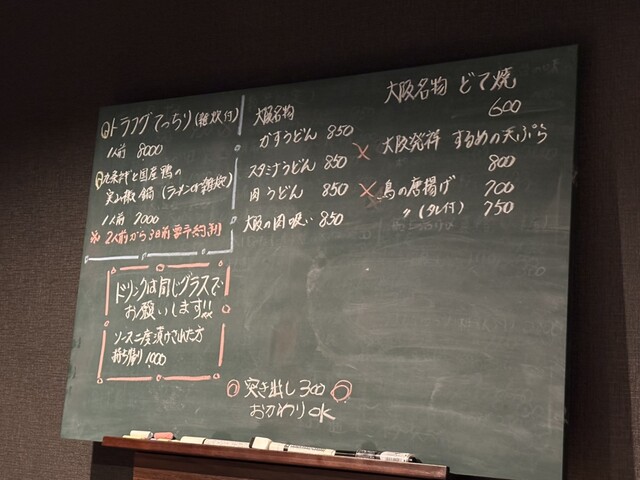 トラフグてっちり(雑炊付)
1人前 8000
九条ネギと国産鶏の
1人前 7000
※ 2人前から3日前要予約制
ドリンクは同じグラスで
お願いします!!
ソース二度漬けされた方
持ち帰り 1,000
大阪名物
かすうどん 850
スタミナうどん 850
肉うどん 850
大阪の肉吸い 850
大阪名物 どて焼
600
× 大阪発祥 するめの天ぷら
800
× 鳥の唐揚げ 700
〃 (タレ付) 750
◎ 突き出し 300 ◎
おかわりOK